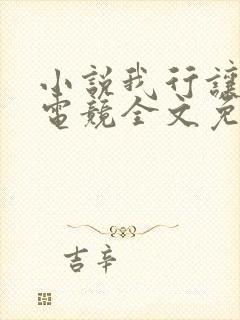 小説我行讓
電競全文免
吉辛